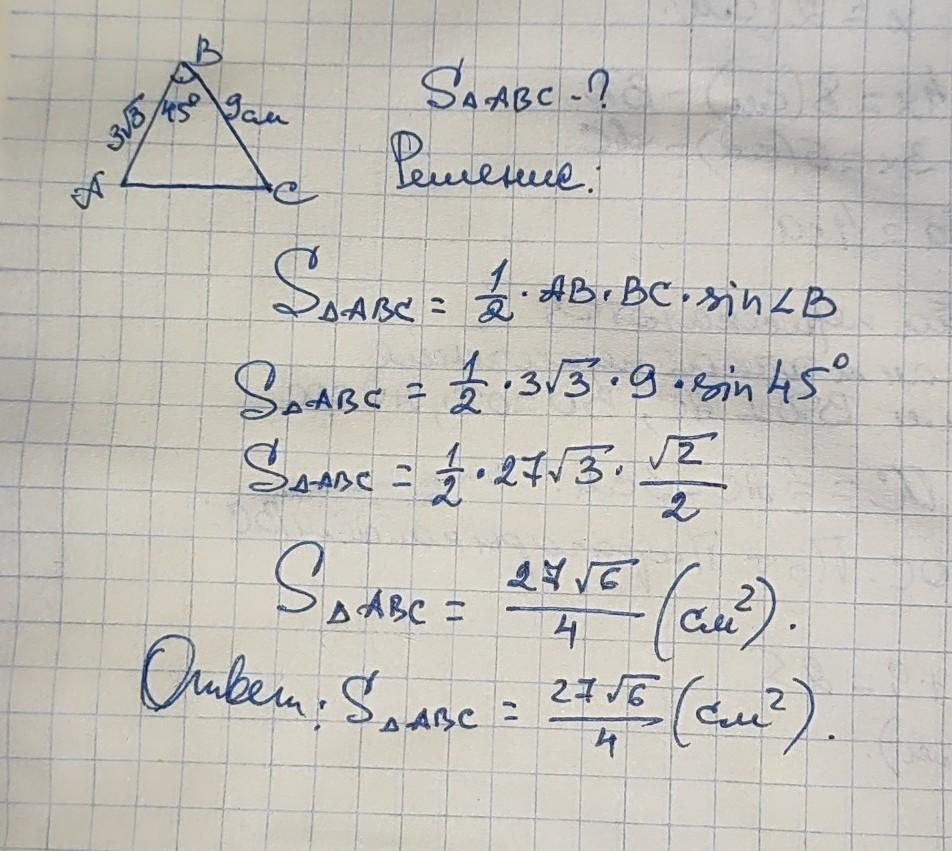 B
3√3 45° 9см
A C
S△ABC - ?
Решение:
S△ABC = 1/2 · AB · BC · sin∠B
S△ABC = 1/2 · 3√3 · 9 · sin 45°
S△ABC = 1/2 · 27√3 · √2/2
S△ABC = 27√6/4 (см²).
Ответ: S△ABC = 27√6/4 (см²).